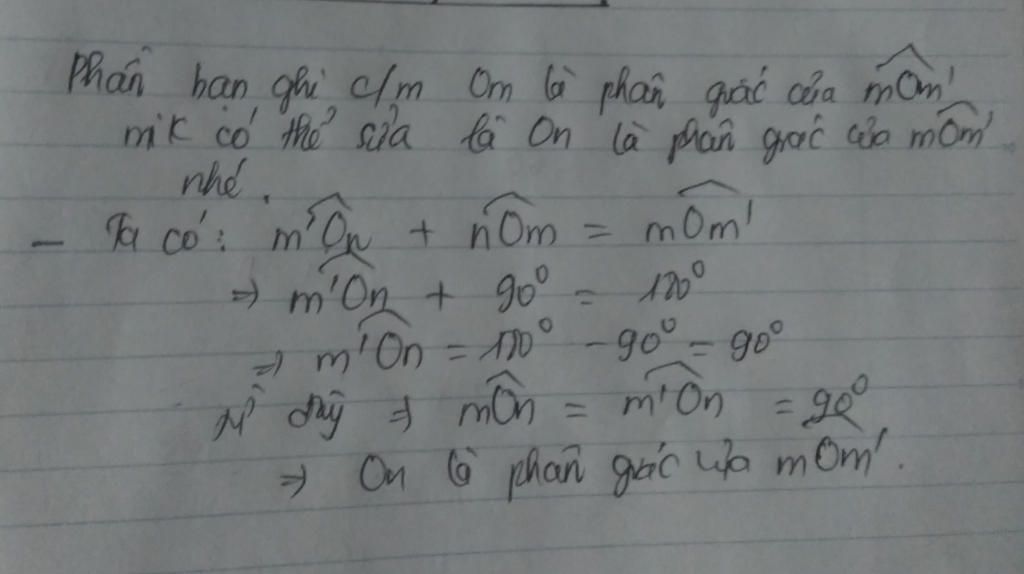 Phần bạn ghi c/m Om là phân giác của mOm'
mik có thể sửa là On là phân giác của mOm'
nhé.
- Ta có: m'On + nOm = mOm'
⇒ m'On + 90° = 180°
⇒ m'On = 180° - 90° = 90°
Từ đây ⇒ mOn = m'On = 90°
⇒ On là phân giác của mOm'.